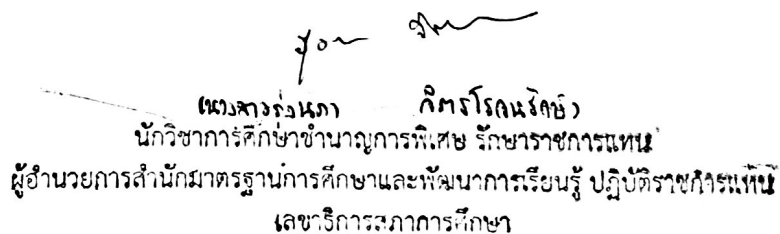 (นางสาวรุ่งนภา จิตรโรจนรักษ์)
นักวิชาการศึกษาชำนาญการพิเศษ รักษาราชการแทน
ผู้อำนวยการสำนักมาตรฐานการศึกษาและพัฒนาการเรียนรู้ ปฏิบัติราชการแทน
เลขาธิการสภาการศึกษา